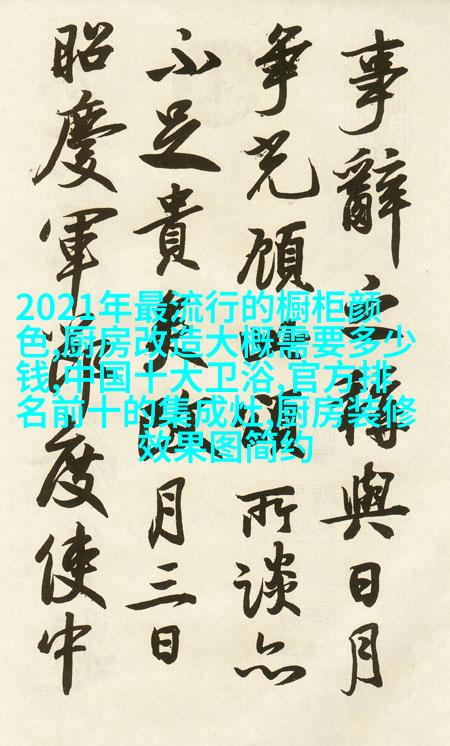 事辭之與日月
爭光顧所談亦
不足貴矣月三日
昭慶軍節度使中
2021年最流行的橱柜颜
色,厨房改造大概需要多少
钱,中国十大卫浴,官方排
名前十的集成灶,厨房装修
效果图简约